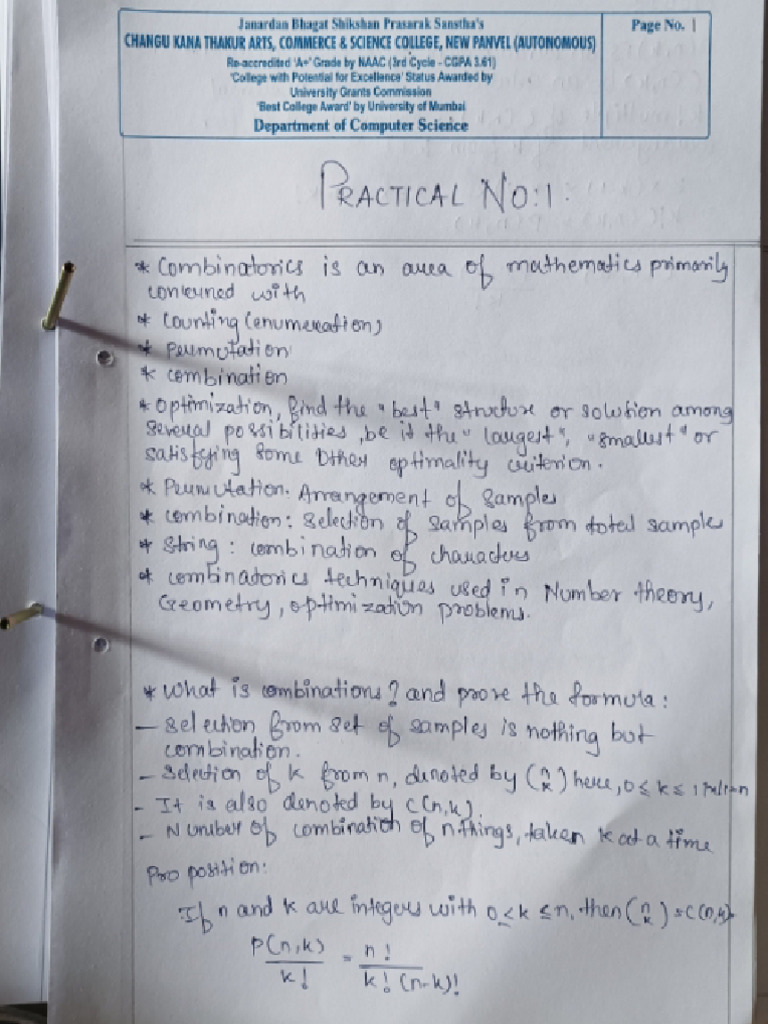 Janardan Bhagat Shikshan Prasarak Sanstha's
CHANGU KANA THAKUR ARTS, COMMERCE & SCIENCE COLLEGE, NEW PANVEL (AUTONOMOUS)
Re-accredited 'A+' Grade by NAAC (3rd Cycle - CGPA 3.61)
'College with Potential for Excellence' Status Awarded by
University Grants Commission
'Best College Award' by University of Mumbai
Department of Computer Science
Page No. 1
PRACTICAL NO:1.
* Combinatorics is an area of mathematics primarily
concerned with
* Counting (enumeration)
* Permutation
* combination
* Optimization, find the "best" structure or solution among
several possibilities, be it the "largest", "smallest" or
satisfying some other optimality criterion.
* Permutation. Arrangement of samples
* combination: selection of samples from total sample
* String: combination of characters
* combinatorics techniques used in Number theory,
Geometry, optimization problems.
* What is combinations? and prove the formula:
- selection from set of samples is nothing but
combination.
- Selection of k from n, denoted by (n k) here, 0 ≤ k ≤
- It is also denoted by C(n,k)
- Number of combination of n things, taken k at a time
Proposition:
If n and k are integers with 0 ≤ k ≤ n, then (n k) = C(n,k)
P(n,k)/k! = n!/k!(n-k)!